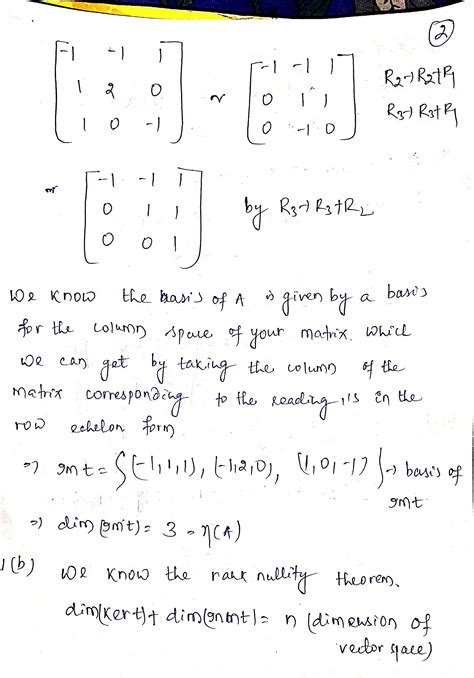 2
[-1 -1 1] ~ [-1 -1 1] R2→R2+R1
[1 2 0] [0 1 1] R3→R3+R1
[1 0 -1] [0 -1 0]
~ [-1 -1 1]
[0 1 1] by R3→R3+R2
[0 0 1]
We know the basis of A is given by a basis
for the column space of your matrix. which
we can get by taking the column of the
matrix corresponding to the leading 1's in the
row echelon form
⇒ Imt = {(-1,1,1), (-1,2,0), (1,0,-1)} → basis of
Imt
⇒ dim(Imt) = 3 = r(A)
1(b) We know the rank nullity theorem,
dim(Ker t) + dim(Imt) = n (dimension of
vector space)